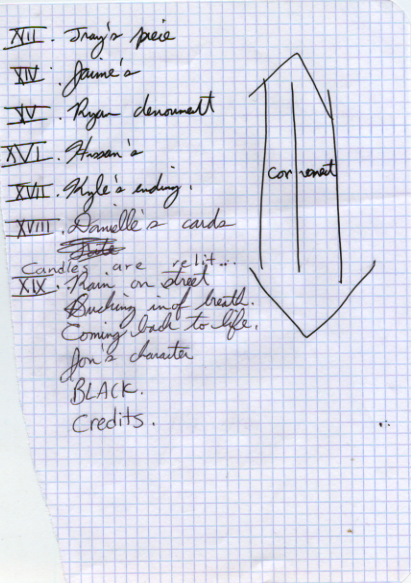 XIII. Tray's pieie
XIV. Jaime's
XV. Ryan denoument
XVI. Hassan's
XVII. Kyle's ending.
XVIII. Danielle's cards
Candles are relit...
XIX. Rain on street
Sucking in of breath.
Coming back to life.
Jon's charaiter
BLACK.
Credits.